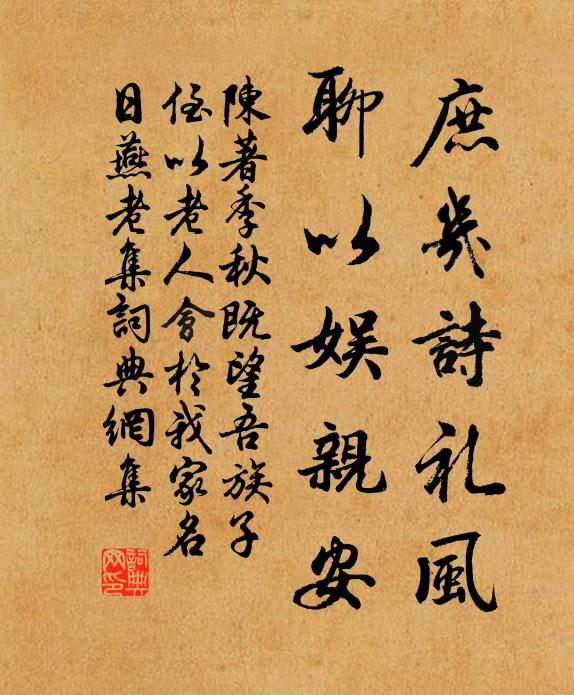 庶几詩礼風
聊以娱親安
陳著季秋既望吾族子
侄以老人會於我家名
日燕老集詞典網集
詞典网印